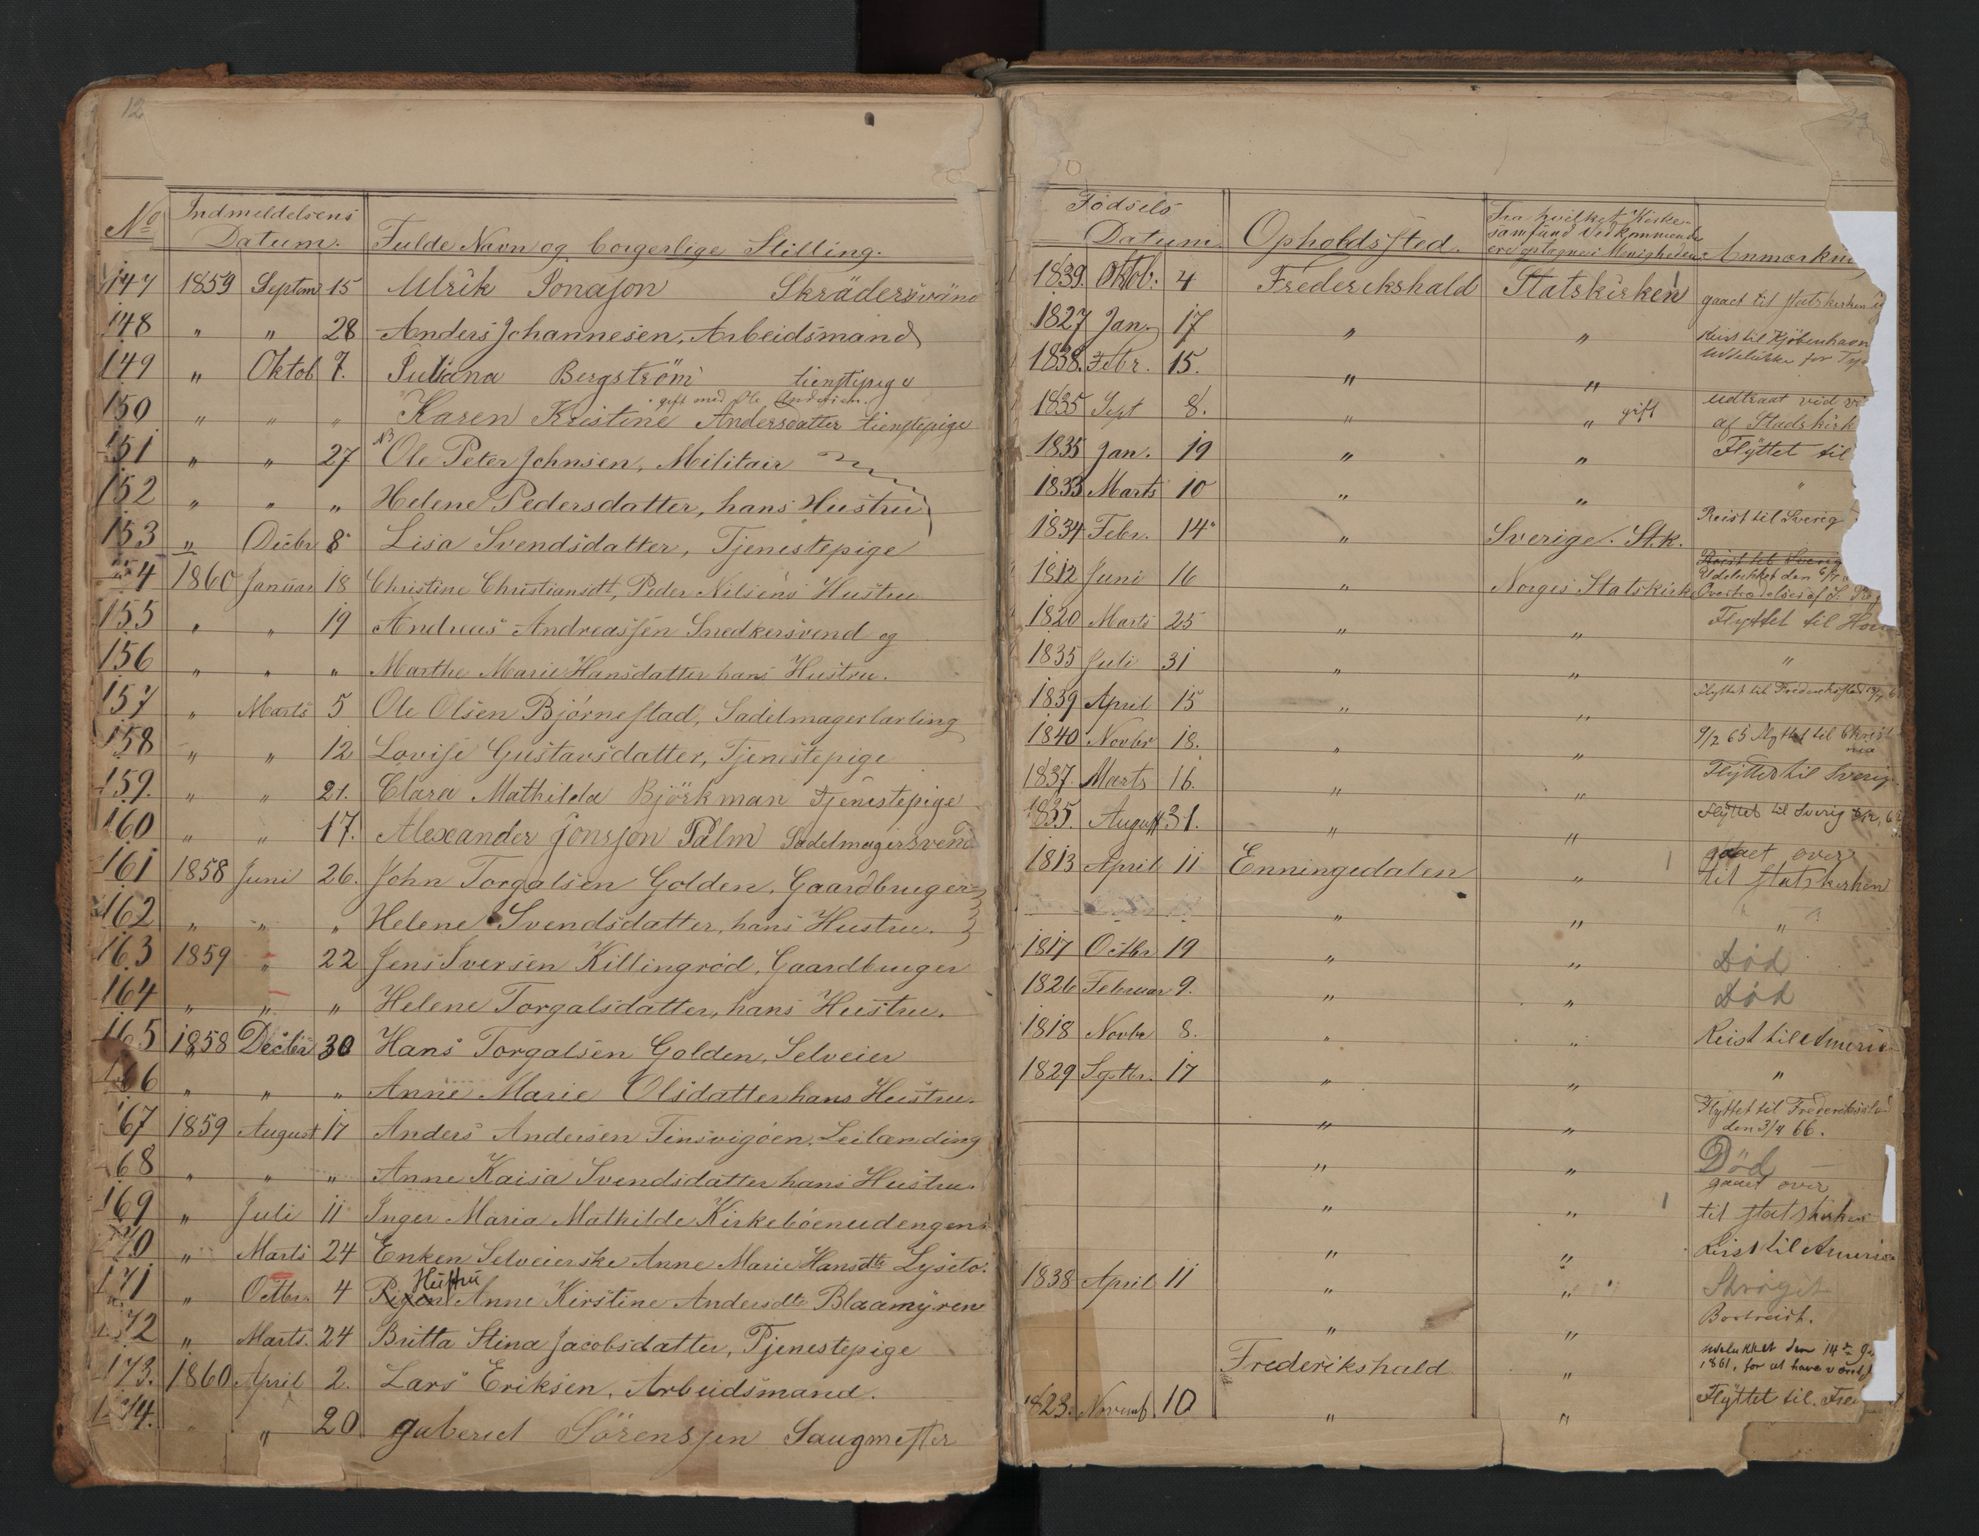 12
No Indmeldelsens Datum. Fulde Navn og borgerlige Stilling.
147 1859 Septem 15 Ulrik Jonasson Skräddersvänd
148 " " 28 Anders Johannesen, Arbeidsmand
149 " Oktob 7. Juliana Bergström tienstepige
gift med Ole Andersen.
150 " " " Karen Kristine Andersdatter tienstepige
151 " " 27 Ole Peter Johnsen, Militair
152 " " " Helene Pedersdatter, hans Hustru
153 " Decbr 8 Lisa Svendsdatter, Tjenestepige
154 1860 Januar 18 Christine Christiansdt, Peder Nilsens Hustru
155 " " 19 Andreas Andreassen Snedkersvend og
156 " " " Marthe Marie Hansdatter hans Hustru.
157 " Marts 5 Ole Olsen Bjørnestad, Sadelmagerlærling
158 " " 12 Lovise Gustavsdatter, Tjenestepige
159. " " 21. Clara Mathilda Björkman tjenestepige
160 " " 17. Alexander Jonsson Palm Sadelmagersvend
161 1858 Juni 26. John Torgalsen Golden, Gaardbruger
162 " " " Helene Svendsdatter, hans Hustru.
163 1859 " 22 Jens Iversen Killingrød, Gaardbruger
164 " " " Helene Torgalsdatter, hans Hustru.
165 1858 Decbr 30 Hans Torgalsen Golden, Selveier
166 " " " Anne Marie Olsdatter hans Hustru.
167 1859 August 17 Anders Andersen Tinsvigöen. Leilænding
168 " " " Anne Kaisa Svendsdatter hans Hustru.
169 " Juli 11 Inger Maria Mathilde Kirkebøenudengens
170 " Marts 24 Enken Selveierske Anne Marie Hansdtr Lyseto.
Hustru
171 " Octbr. 4 Pigen Anne Kirstine Andersdtr Blaamyren
172 " Marts. 24 Britta Stina Jacobsdatter, Tjenestepige
173. 1860 April 2. Lars Eriksen, Arbeidsmand.
174. " 20 gabriel Sörenssen Saugmester
Fødsels Datum. Opholdssted. Fra hvilket Kirkesamfund Vedkommende ere optagne i Menigheden Anmærkni
1839. Oktob. 4 Frederikshald Statskirken gaaet til statskirken
1827 Jan. 17 " " Reist til Kjöbenhavn
1838. Febr. 15. " " udelukke for
1835 Sept 8. " " gift udtraat ved
af Stadskirk
1835 Jan. 19 " " Flyttet til
1833 Marts 10 " " "
1834 Febr. 14 " Sverige. St.k. Reist til Sverig
Reist til Sverig
1812 Juni 16 " Norges Statskirke Udelukket den
Overtrædelse af
1820 Marts 25 " " Flyttet til
1835 Juli 31 " " "
1839 April 15 " " Flyttet til Frederikstad
1840 Novbr 18. " " 9/2 65 Flyttet til Christ
nia
1837. Marts 16. " " Flyttet til Sverig
1835. August 31. " " Flyttet til Sverig
1813 April 11 Enningedalen " gaaet over
til statskirken
" " "
1817 Octbr 19 " " Död
1826 Februar 9. " " Död
1818 Novbr 8. " " Reist til Ameri
1829 Septbr. 17 " " "
" " Flyttet til Frederikstad
den 3/4 66.
" " Död
gaaet over
" " til statskirken
" " Reist til America
1838 April 11 " " Strøget
" " Bortreist.
Frederikshald " udelukket den 14de
1861, for at have
1823. Novemb 10 " " Flyttet til. Fre